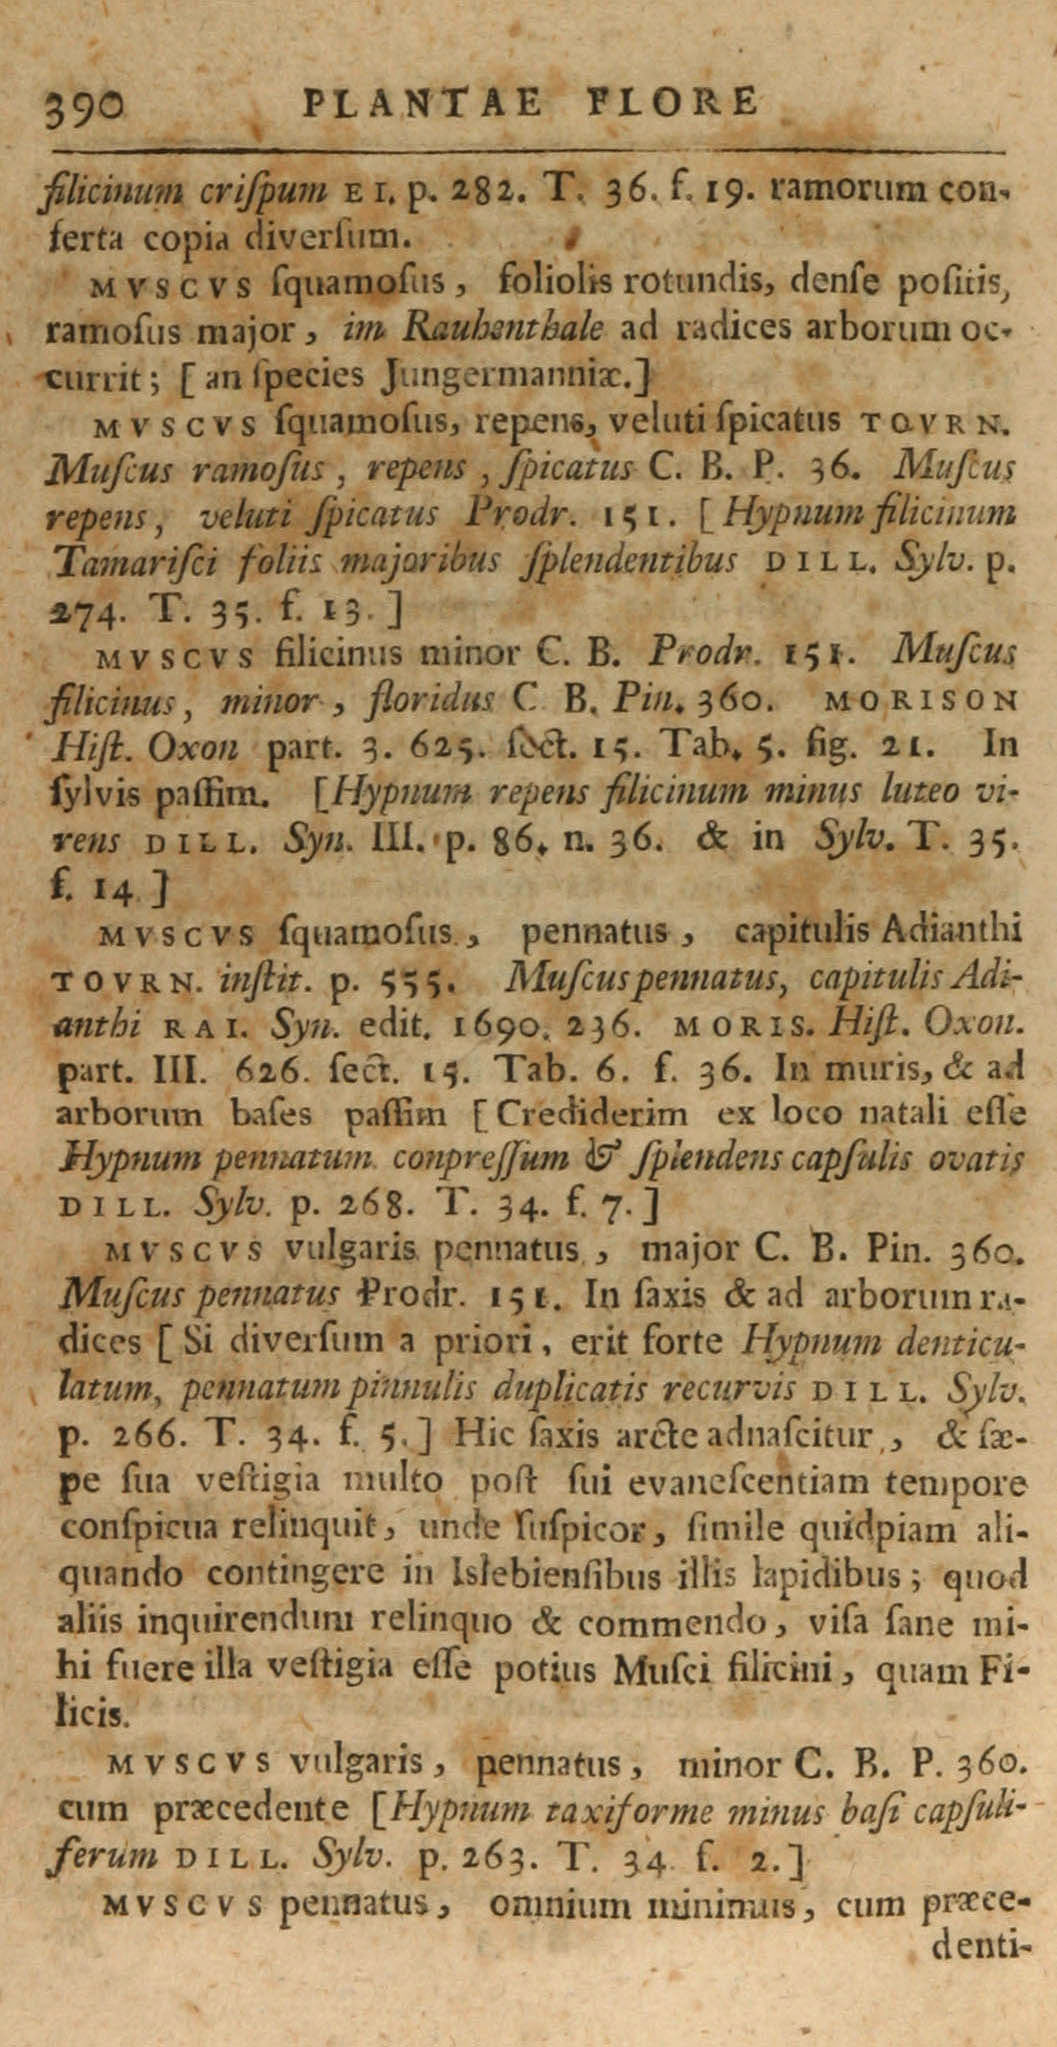 390 PLANTAE FLORE
filicinum criſpum EI. p. 282. T. 36. f. 19. ramorum con-
ferta copia diverſum.
MVSCVS ſquamoſus, foliolis rotundis, denſe poſitis,
ramoſus major, im Rauhenthale ad radices arborum oc-
currit; [an ſpecies Jungermanniæ.]
MVSCVS ſquamoſus, repens, veluti ſpicatus TOVRN.
Muſcus ramoſus, repens, ſpicatus C. B. P. 36. Muſcus
repens, veluti ſpicatus Prodr. 151. [Hypnum filicinum
Tamariſci foliis majoribus ſplendentibus DILL. Sylv. p.
274. T. 35. f. 13.]
MVSCVS filicinus minor C. B. Prodr. 151. Muſcus
filicinus, minor, floridus C. B. Pin. 360. MORISON
Hiſt. Oxon part. 3. 625. ſect. 15. Tab. 5. fig. 21. In
ſylvis paſſim. [Hypnum repens filicinum minus luteo vi-
rens DILL. Syn. III. p. 86. n. 36. & in Sylv. T. 35.
f. 14.]
MVSCVS ſquamoſus, pennatus, capitulis Adianthi
TOVRN. inſtit. p. 555. Muſcus pennatus, capitulis Adi-
anthi RAI. Syn. edit. 1690. 236. MORIS. Hiſt. Oxon.
part. III. 626. ſect. 15. Tab. 6. f. 36. In muris, & ad
arborum baſes paſſim [Crediderim ex loco natali eſſe
Hypnum pennatum conpreſſum & ſplendens capſulis ovatis
DILL. Sylv. p. 268. T. 34. f. 7.]
MVSCVS vulgaris pennatus, major C. B. Pin. 360.
Muſcus pennatus Prodr. 151. In ſaxis & ad arborum ra-
dices [Si diverſum a priori, erit forte Hypnum denticu-
latum, pennatum pinnulis duplicatis recurvis DILL. Sylv.
p. 266. T. 34. f. 5.] Hic ſaxis arcte adnaſcitur, & ſæ-
pe ſua veſtigia multo poſt ſui evaneſcentiam tempore
conſpicua relinquit, unde ſuſpicor, ſimile quidpiam ali-
quando contingere in Islebienſibus illis lapidibus; quod
aliis inquirendum relinquo & commendo, viſa ſane mi-
hi fuere illa veſtigia eſſe potius Muſci filicini, quam Fi-
licis.
MVSCVS vulgaris, pennatus, minor C. B. P. 360.
cum præcedente [Hypnum taxiforme minus baſi capſuli-
ferum DILL. Sylv. p. 263. T. 34. f. 2.]
MVSCVS pennatus, omnium minimus, cum præce-
denti-